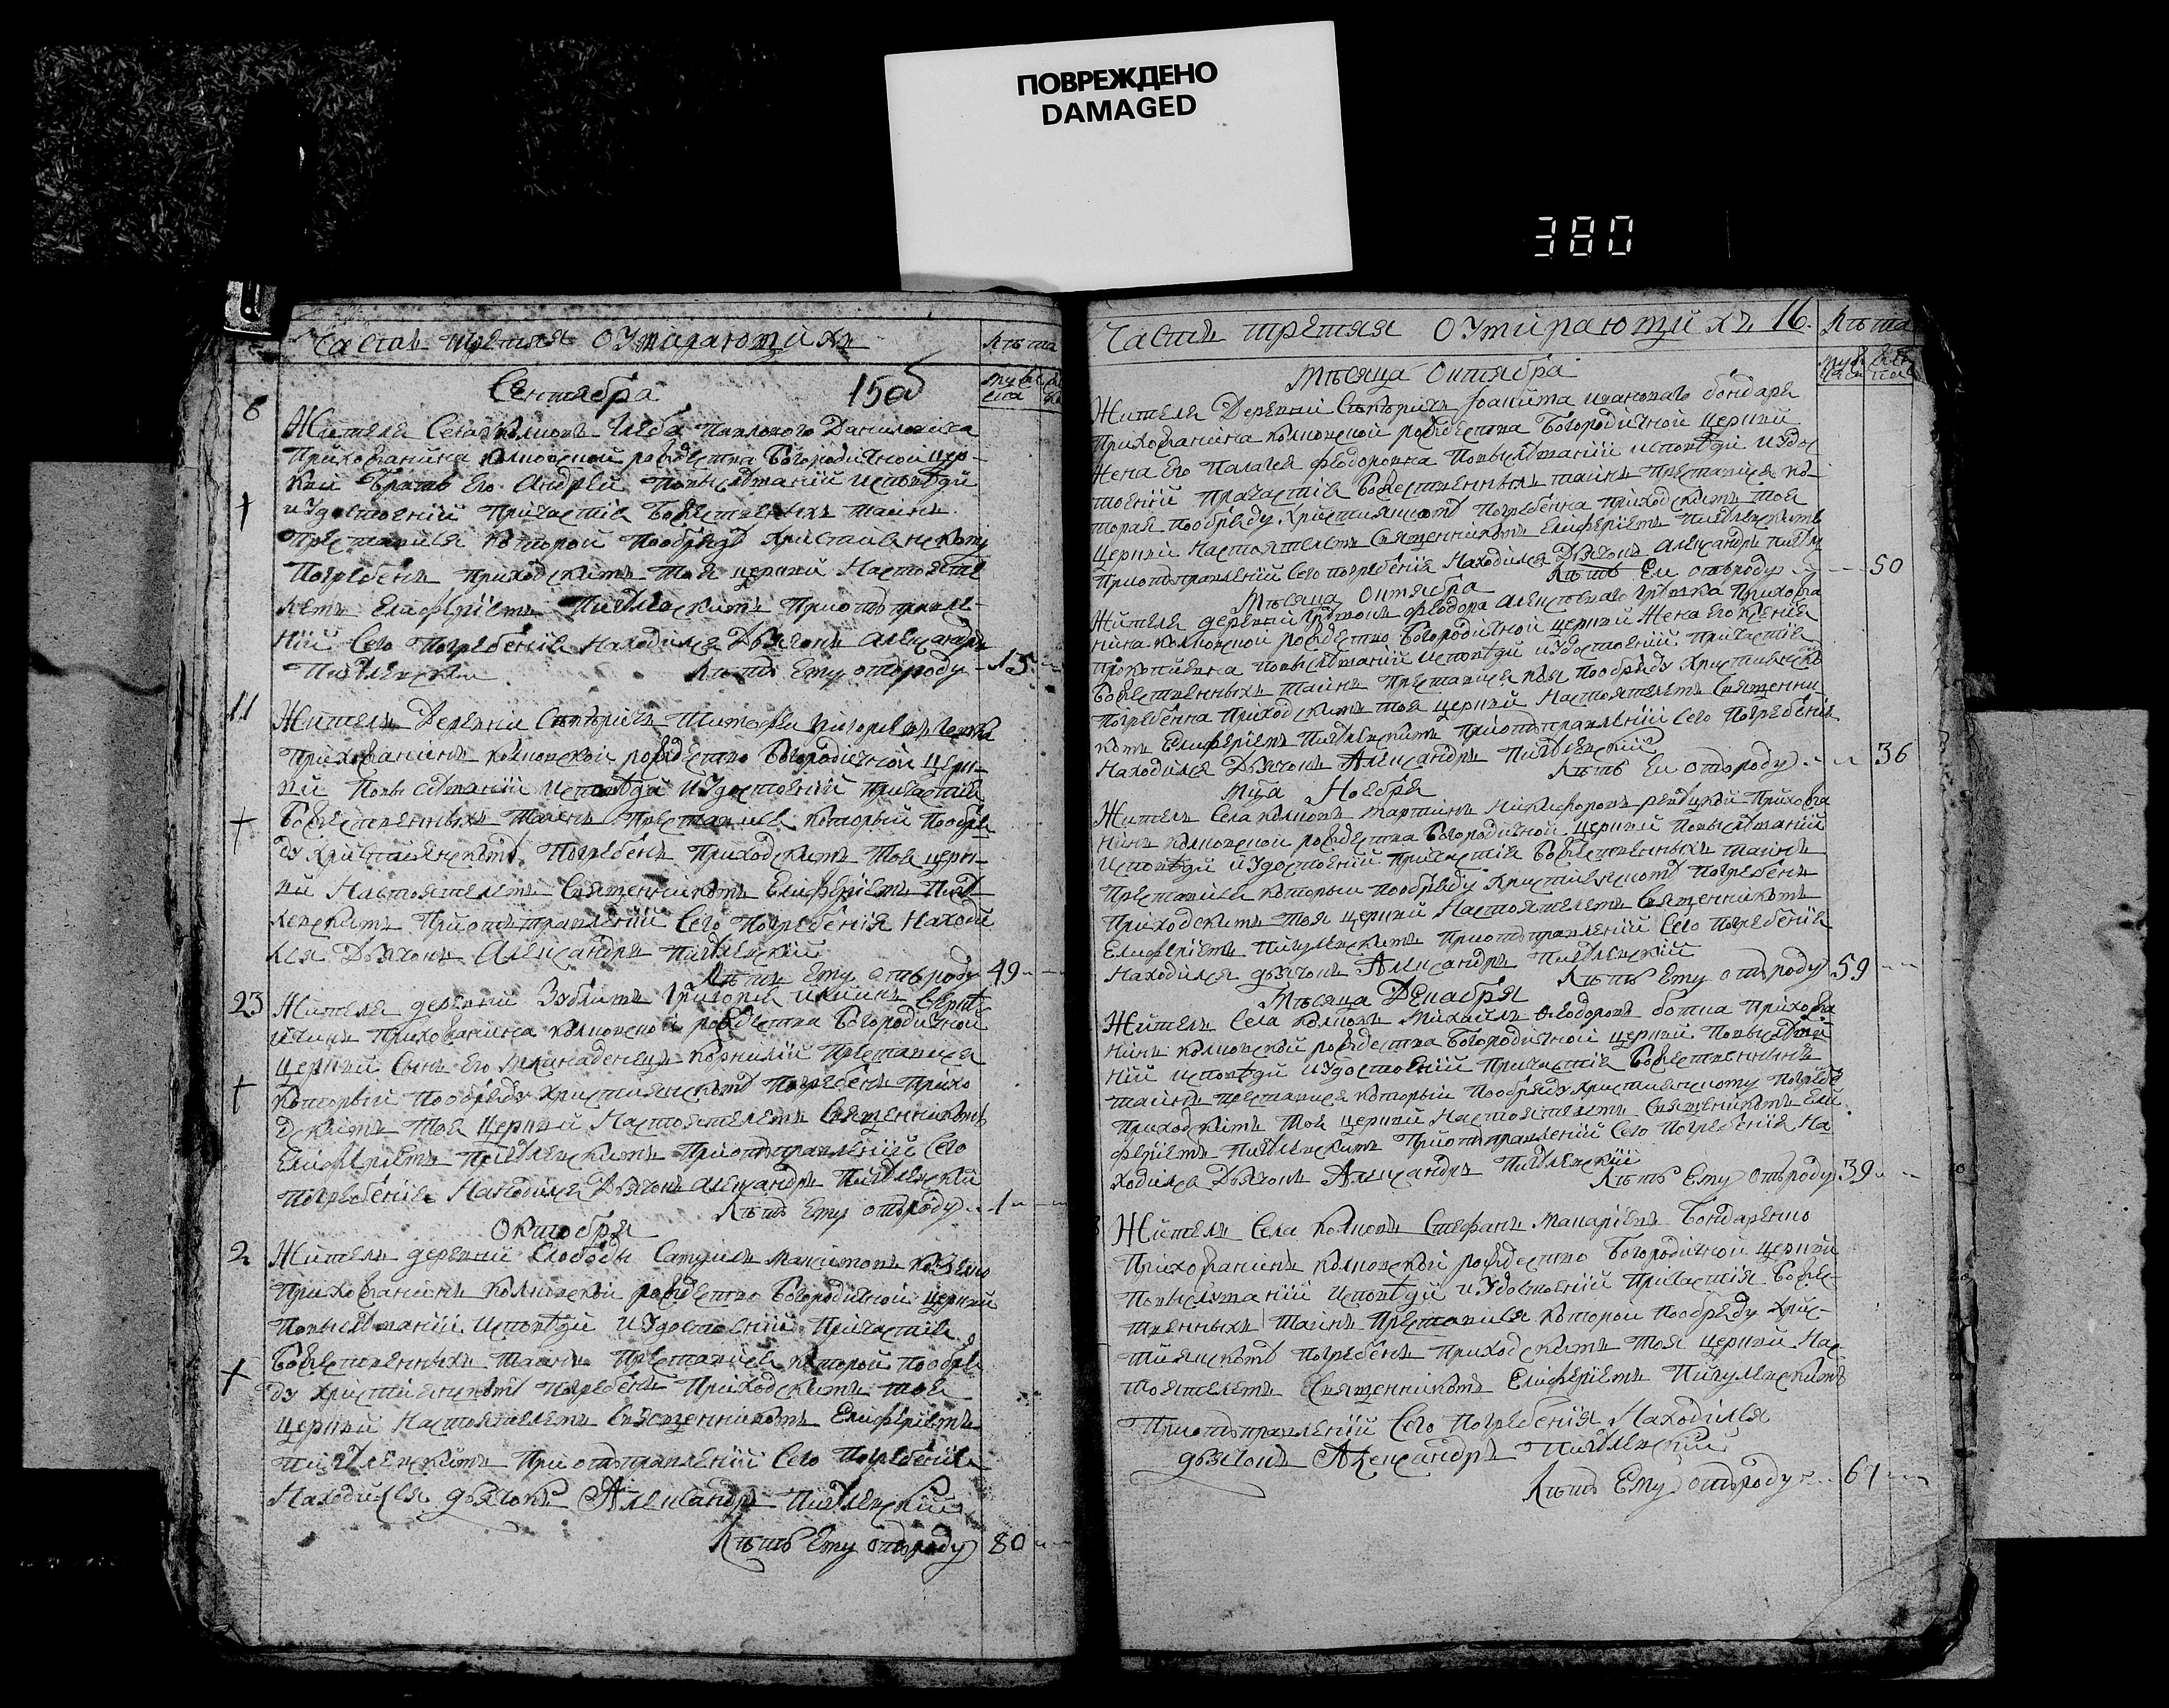 ПОВРЕЖДЕНО
DAMAGED
380
Часть третяя О Умирающихъ
Лѣта
Сентября 15об
6
Жителя Села Колковъ Глеба Данилюка
Прихожанина Колковской рождества Богородичной цер-
кви Братъ Его Андрей Повыслушаніи исповѣди
и Удостоеніи Причастія Божественныхъ таинъ
Преставися которой Пообряду Христіянскому
Погребенъ Приходскимъ Тоя церкви Настояте
лемъ Елиферіемъ Пигулевскимъ Приотправле-
ніи Сего Погребенія Находился Дьячокъ Александръ
Пигулевскій Лѣтъ Ему отъроду 15
11
Житель Деревни Тимофей
Прихожанинъ Колковской рождество Богородичной церк-
ви Повыслушаніи исповѣди и Удостоеніи Причастія
Божественныхъ Таинъ Преставися который Пообря
ду Христіянскому Погребенъ Приходскимъ Тоя церк-
ви Настоятелемъ Священникомъ Елиферіемъ Пигу
левскимъ Приотправленіи Сего Погребенія Находи
лся Дьячокъ Александръ Пигулевскій
Лѣтъ Ему отъроду 49
23
Жителя деревни Григорія
Прихожанина Колковской рождества Богородичной
церкви Сынъ Его Младенецъ Корнилій Преставися
который Пообряду Христіянскому Погребенъ Прихо
дскимъ Тоя Церкви Настоятелемъ Священникомъ
Елиферіемъ Пигулевскимъ Приотправленіи Сего
Погребенія Находился Дьячокъ Александръ Пигулевскій
Лѣтъ Ему отъроду 1
Октобря
2
Житель деревни Слободы Самуилъ Максимовъ
Прихожанинъ Колковской рождество Богородичной церкви
Повыслушаніи Исповѣди и Удостоеніи Причастія
Божественныхъ Таинъ Преставися которой Пообря
ду Христіянскому Погребенъ Приходскимъ тоя
церкви Настоятелемъ Священникомъ Елиферіемъ
Пигулевскимъ Приотправленіи Сего Погребенія
Находился дьячокъ Александръ Пигулевскій
Лѣтъ Ему отъроду 80
Часть третяя О Умирающихъ 16.
Лѣта
Мѣсяца Октября
Жителя Деревни Иоакима Бондаря
Прихожанина Колковской рождества Богородичной церкви
Жена Его Палагея Феодоровна Повыслушаніи исповѣди и Удос
тоеніи Причастія Божественныхъ таинъ Преставися ко-
торая пообряду Христіянскому Погребенна приходскимъ тоя
Церкви Настоятелемъ Священникомъ Елиферіемъ Пигулевскимъ
Приотправленіи Сего погребенія Находился Дьячокъ Александръ
Лѣтъ Ей отъроду 50
Мѣсяца Октября
Жителя деревни Феодора Прихожа
нина Колковской рождество Богородичной церкви Жена Его Ксенія
Прокопіевна повыслушаніи исповѣди и Удостоеніи Причастія
Божественныхъ Таинъ Преставися Коя Пообряду
Погребенна Приходскимъ тоя церкви Настоятелемъ Священни
комъ Елиферіемъ Пигулевскимъ приотправленіи Сего Погребенія
Находился Дьячокъ Александръ Пигулевскій
Лѣтъ Ей отъроду 36
Мца Ноебря
Житель Села Колковъ Мартинъ Никифоровъ Прихожа
нинъ Колковской рождества Богородичной Церкви Повыслушаніи
Исповѣди и Удостоеніи Причастія Божественныхъ таинъ
Преставися которыи пообряду Христіянскому Погребенъ
Приходскимъ Тоя церкви Настоятелемъ Священникомъ
Елиферіемъ Пигулевскимъ Приотправленіи Сего Погребенія
Находился дьячокъ Александръ Пигулевскій
Лѣтъ Ему отъроду 59
Мѣсяца Декабря
Житель Села Колковъ Михаилъ Феодоровъ Прихожа
нинъ Колковской рождества Богородичной церкви Повыслуша
ніи исповѣди и Удостоеніи Причастія Божественныхъ
Таинъ преставися который Пообряду Христіянскому
приходскимъ Тоя церкви Настоятелемъ Священникомъ Ели
феріемъ Пигулевскимъ Приотправленіи Сего Погребенія На-
ходился Дьячокъ Александръ Пигулевскій
Лѣтъ Ему отъроду 39
Житель Села Колковъ Стефанъ Макаріевъ Бондаренко
Прихожанинъ Колковской рождество Богородичной церкви
Повыслушаніи Исповѣди и Удостоеніи Причастія Божес-
твенныхъ Таинъ Преставися которой пообряду Хрис-
тіянскому Погребенъ Приходскимъ Тоя церкви Нас-
тоятелемъ Священникомъ Елиферіемъ Пигулевскимъ
Приотправленіи Сего погребенія Находился
дьячокъ Александръ Пигулевскій
Лѣтъ Ему отъроду 61